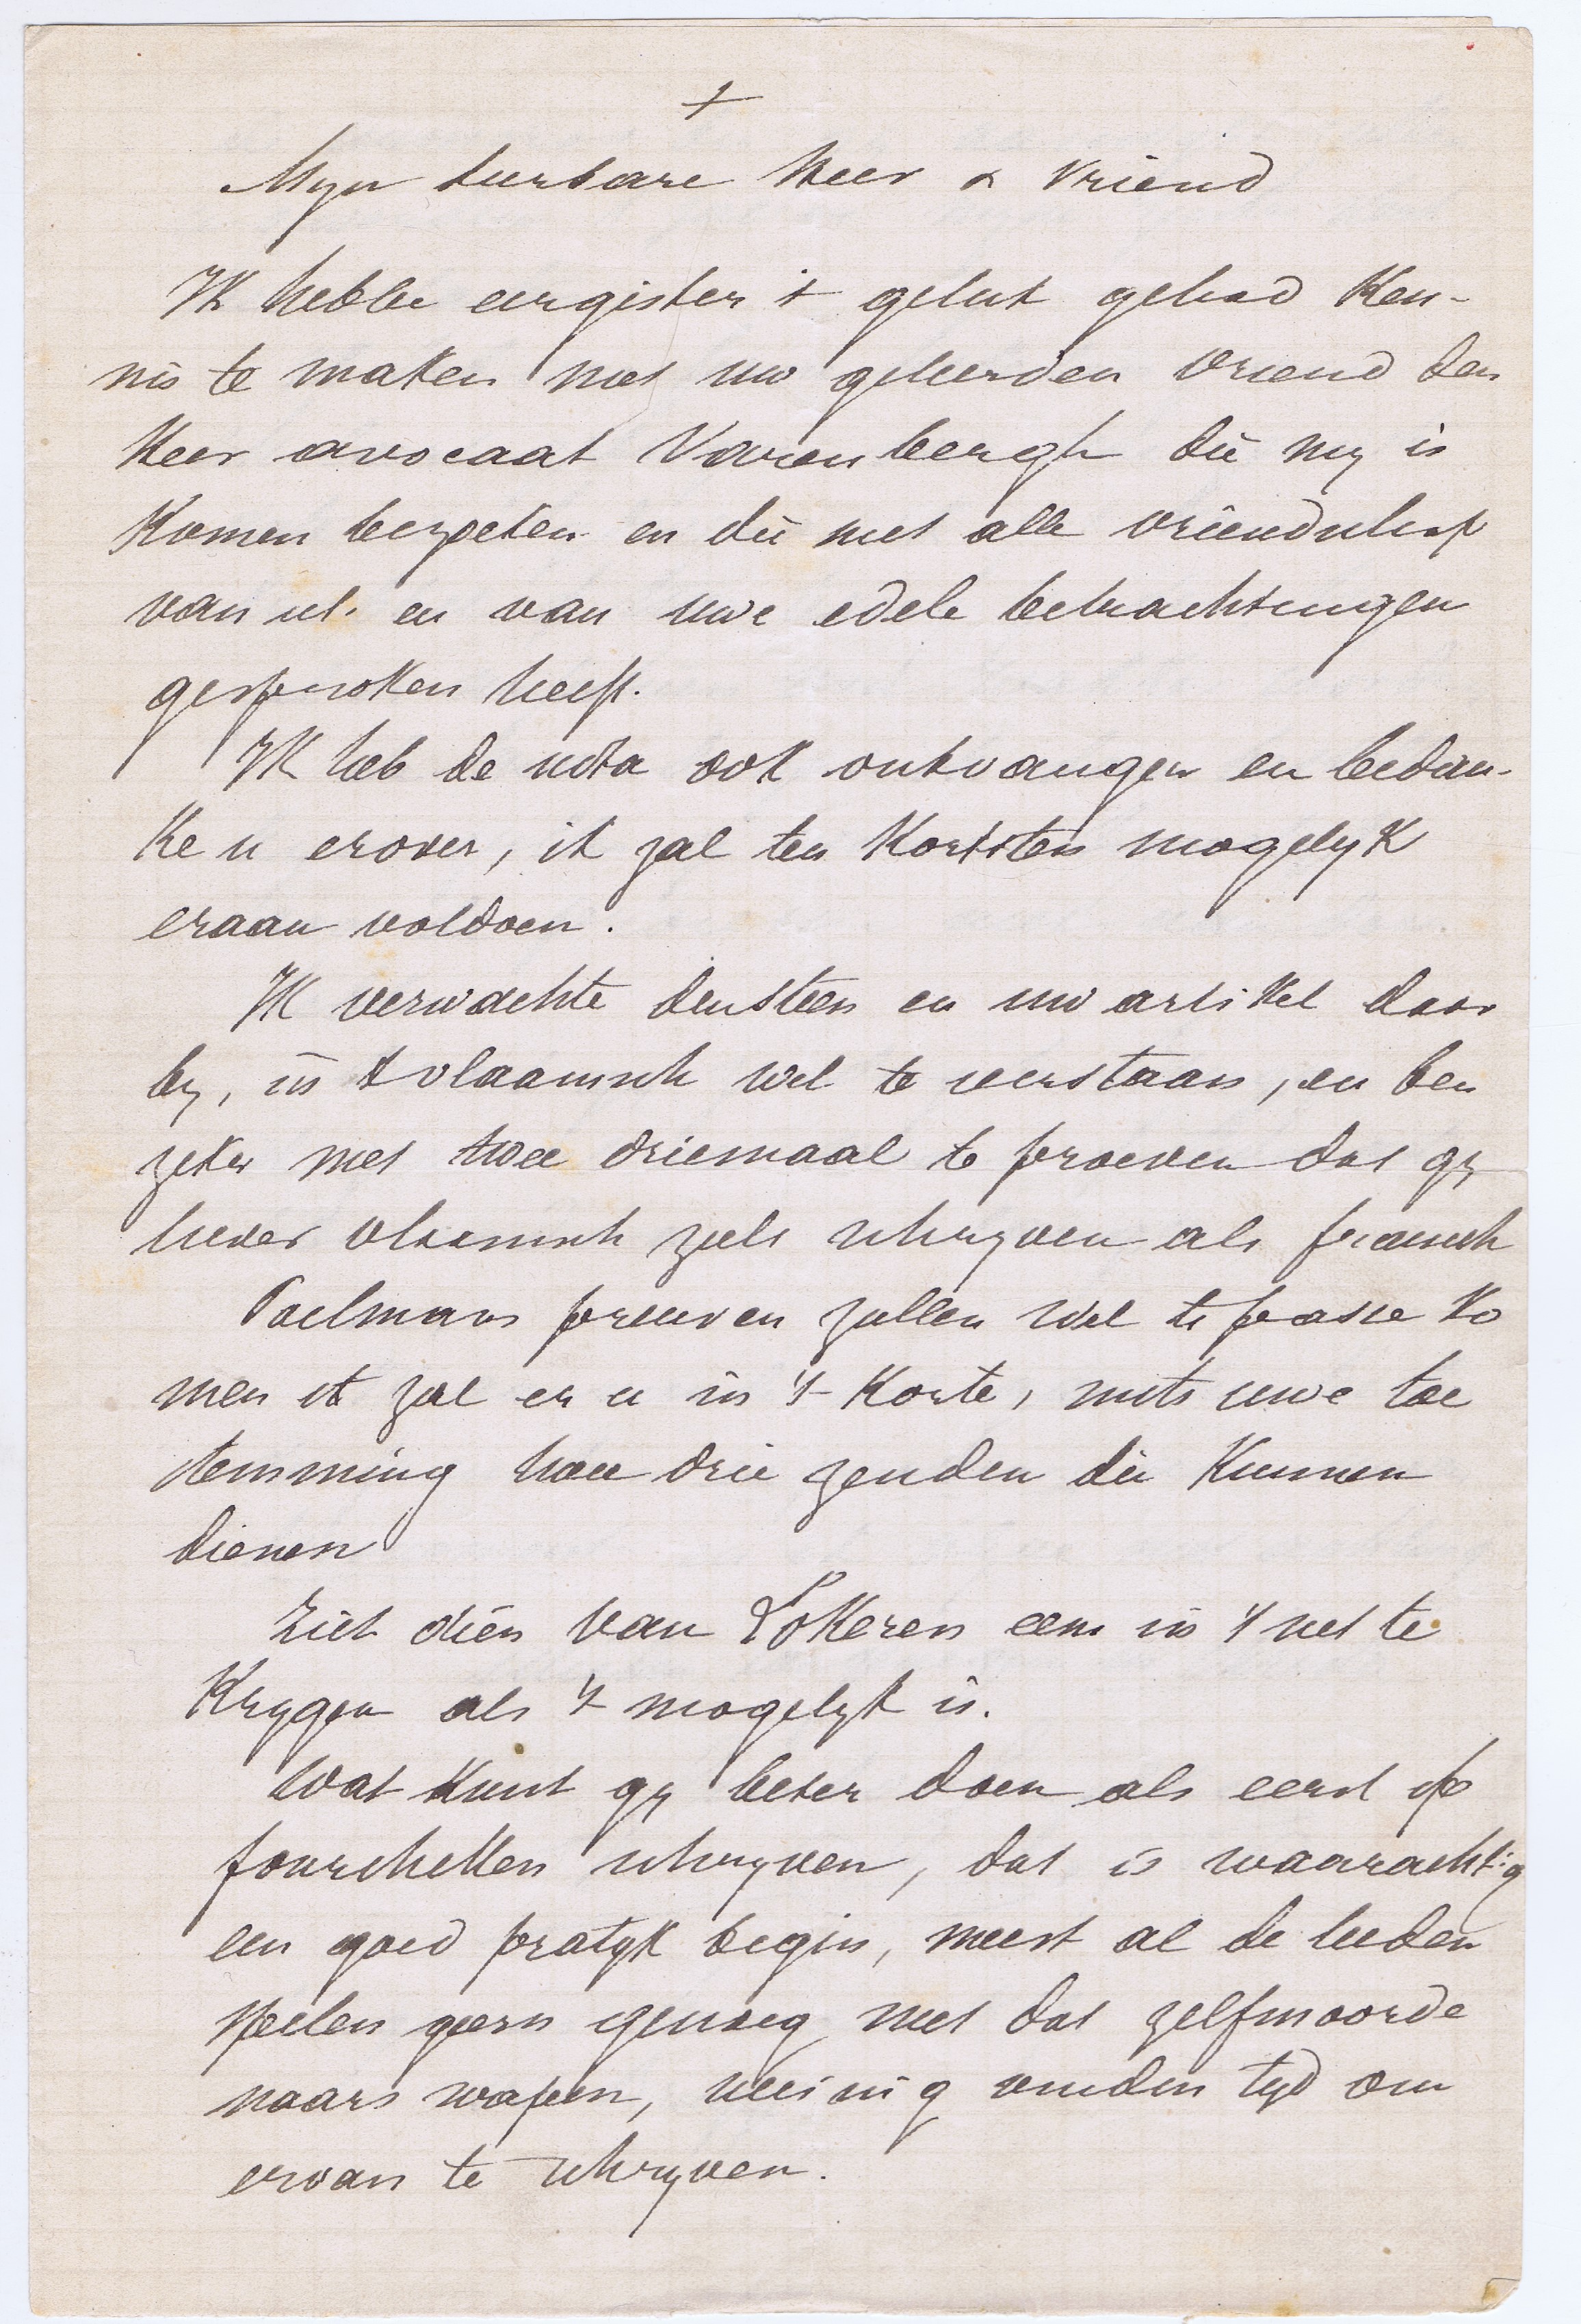 +
Myn eerbare Heer & Vriend
Ik hebbe eergister 't geluk gehad ken-
nis te maken met uw geleerden vriend den
Heer avocaat Varenbergh die my is
komen bezoeken en die met alle vriendschap
van ul. en van uwe edele betrachtingen
gesproken heeft.
Ik heb de nota ook ontvangen en bedan-
ke u erover, ik zal ten kortsten mogelyk
eraan voldoen.
Ik verwachte den steen en uw artikel daar
by, in 't vlaamsch wel te verstaan, en ben
zeker met twee driemaal te proeven dat gy
liever vlaamsch zult schryven als fransch
Paelmans preuven zullen wel te passe ko
men ik zal er u in 't korte, mits uwe toe
stemming twee drie zenden die kunnen
dienen
Ziet dien van Lokeren eens in 't net te
krygen als 't mogelyk is.
Wat kunt gy beter doen als eerst op
fourchetten schryven, dat is waarachtig
een goed pratyk begin, meest al de lieden
spelen geern genoeg met dat zelfmoorde
naars wapen, weinig vinden tyd om
ervan te schryven.